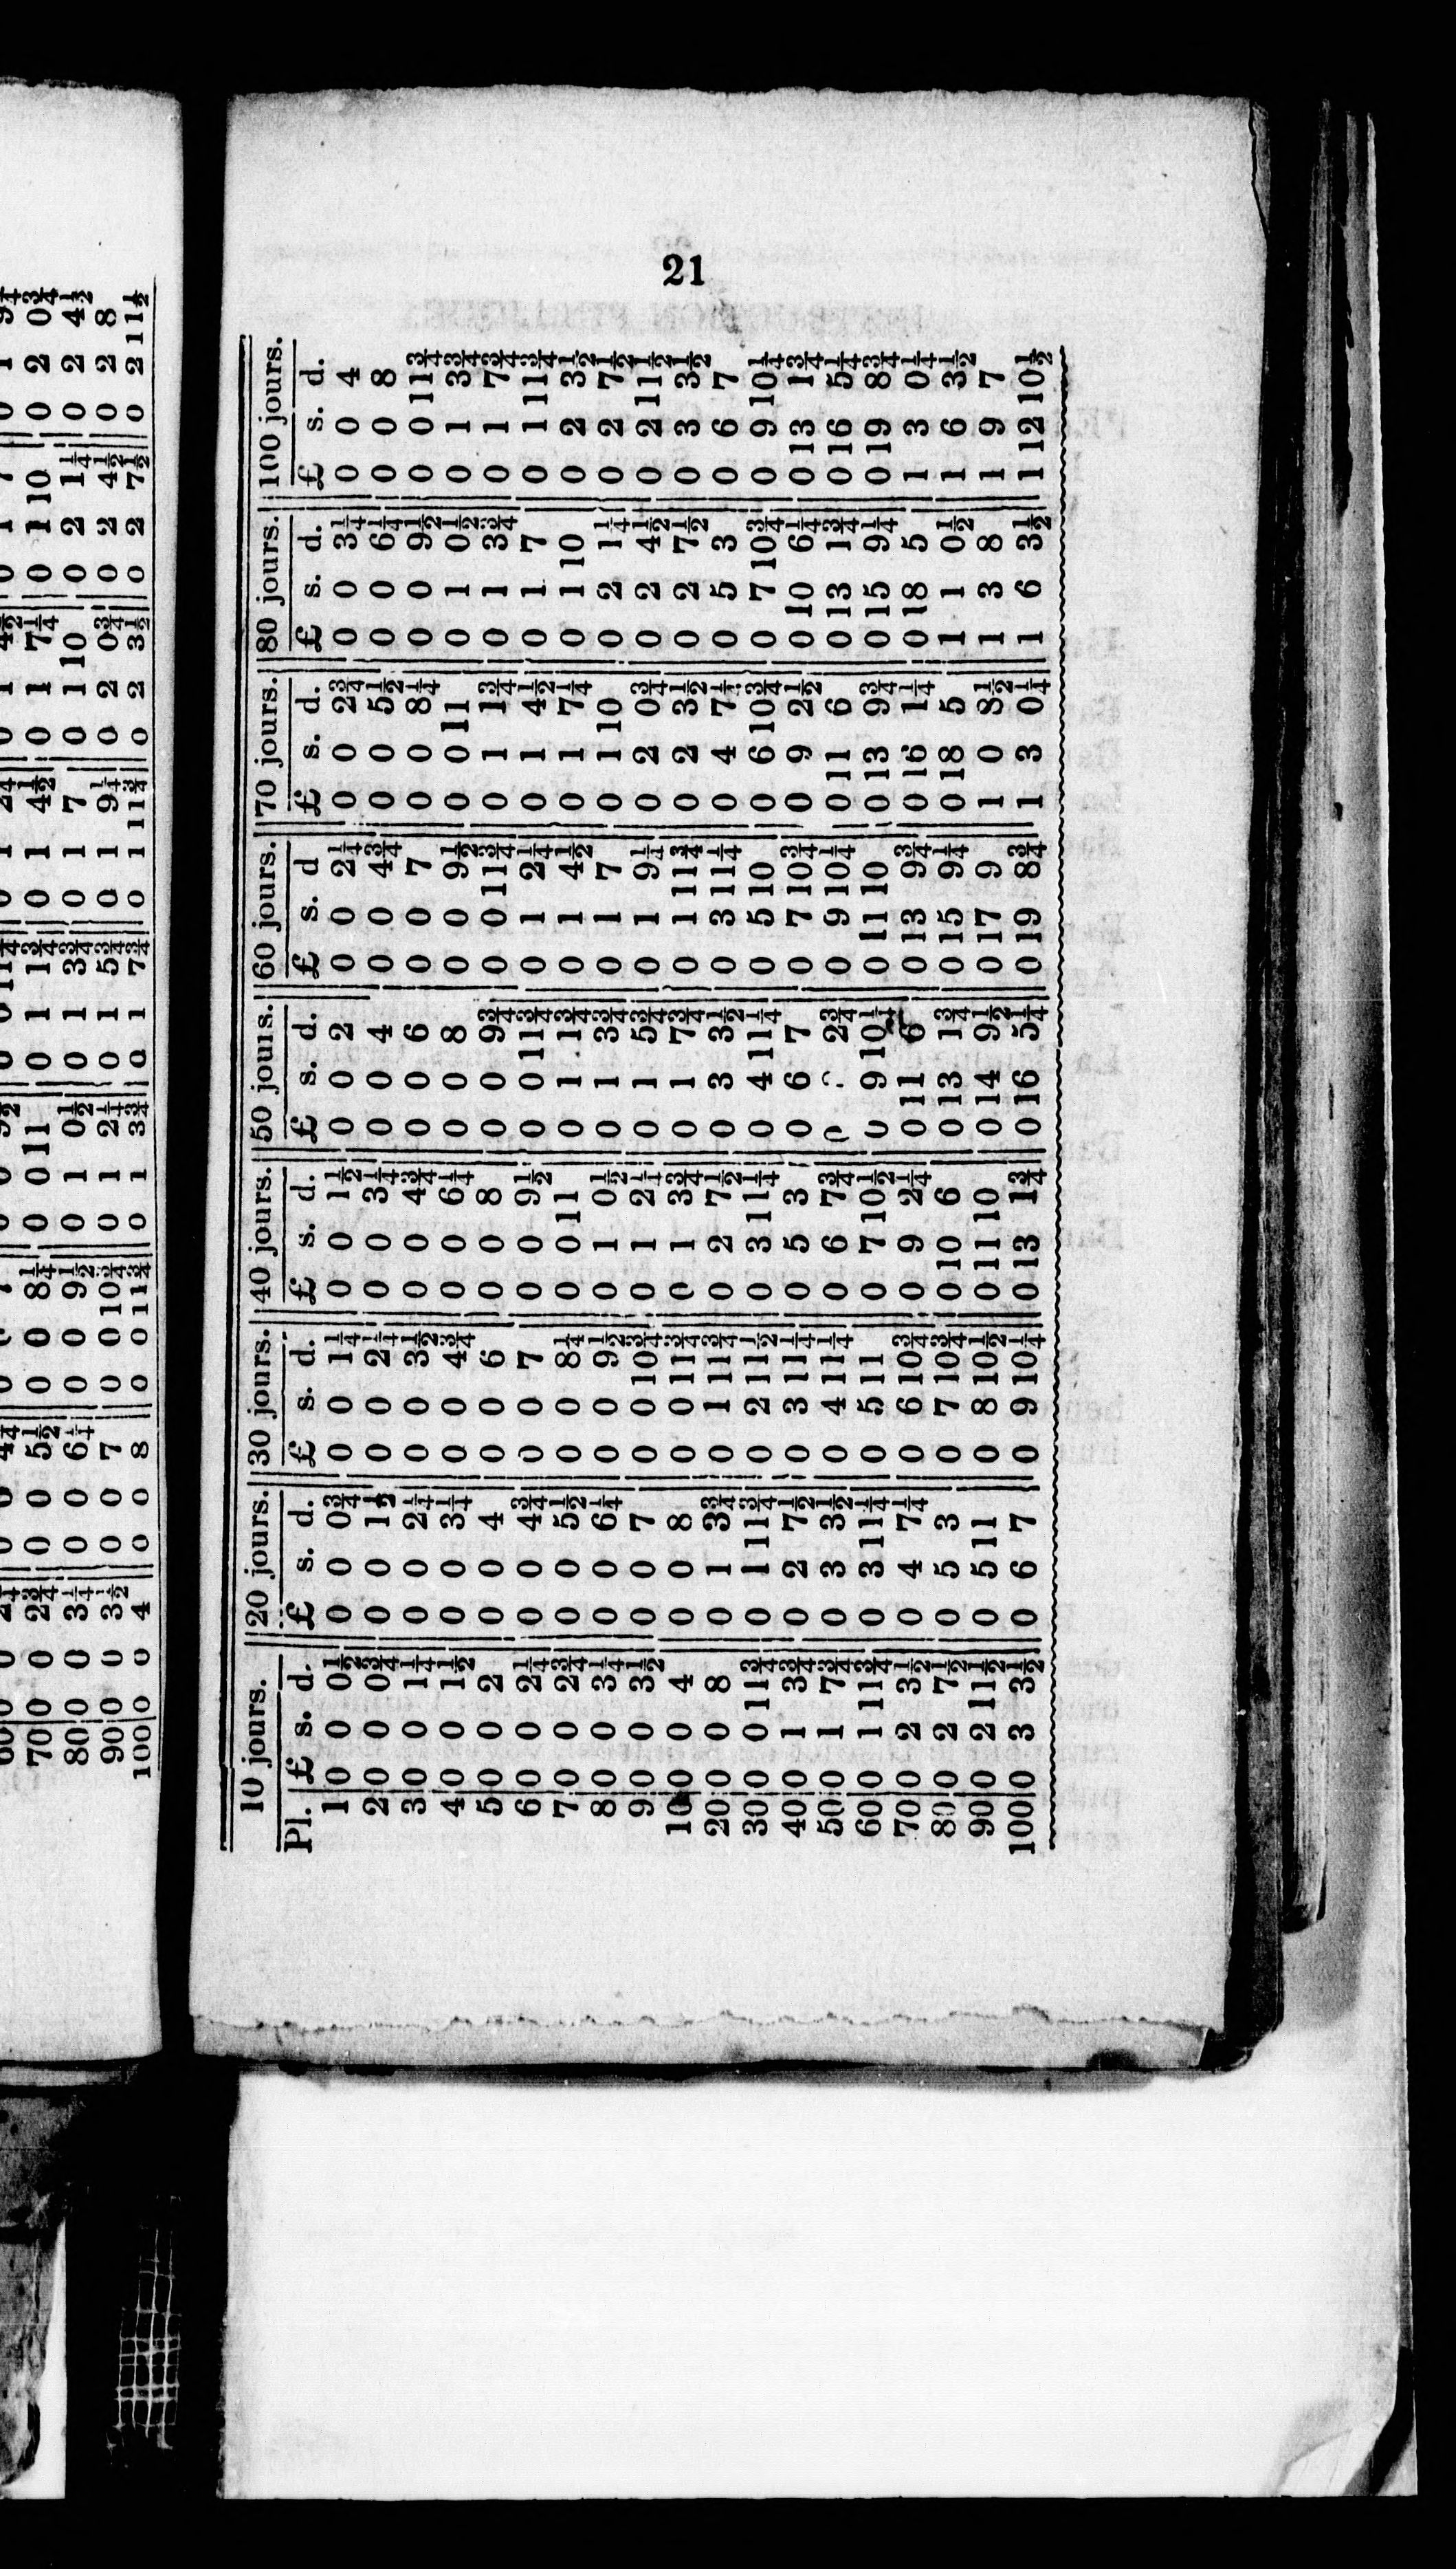 70 0 0 2¾ 0 0 5½ 0 0 8¼ 0 0 11 0 1 1¾ 0 1 4½ 0 1 7¼ 0 1 10 0 2 0¾
80 0 0 3¼ 0 0 6¼ 0 0 9½ 0 1 0½ 0 1 3¾ 0 1 7 0 1 10 0 2 1¼ 0 2 4½
90 0 0 3½ 0 0 7 0 0 10¾ 0 1 2¼ 0 1 5¾ 0 1 9¼ 0 2 0¾ 0 2 4½ 0 2 8
100 0 0 4 0 0 8 0 0 11¾ 0 1 3¾ 0 1 7¾ 0 1 11¾ 0 2 3½ 0 2 7½ 0 2 11½
21
10 jours. 20 jours. 30 jours. 40 jours. 50 jours. 60 jours. 70 jours. 80 jours. 100 jours.
Pl. £ s. d. £ s. d. £ s. d. £ s. d. £ s. d. £ s. d £ s. d. £ s. d. £ s. d.
1 0 0 0½ 0 0 0¾ 0 0 1¼ 0 0 1½ 0 0 2 0 0 2¼ 0 0 2¾ 0 0 3¼ 0 0 4
2 0 0 0¾ 0 0 1½ 0 0 2¼ 0 0 3¼ 0 0 4 0 0 4¾ 0 0 5½ 0 0 6¼ 0 0 8
3 0 0 1¼ 0 0 2¼ 0 0 3½ 0 0 4¾ 0 0 6 0 0 7 0 0 8¼ 0 0 9½ 0 0 11¾
4 0 0 1½ 0 0 3¼ 0 0 4¾ 0 0 6¼ 0 0 8 0 0 9½ 0 0 11 0 1 0½ 0 1 3¾
5 0 0 2 0 0 4 0 0 6 0 0 8 0 0 9¾ 0 0 11¾ 0 1 1¾ 0 1 3¾ 0 1 7¾
6 0 0 2¼ 0 0 4¾ 0 0 7 0 0 9½ 0 0 11¾ 0 1 2¼ 0 1 4½ 0 1 7 0 1 11¾
7 0 0 2¾ 0 0 5½ 0 0 8¼ 0 0 11 0 1 1¾ 0 1 4½ 0 1 7¼ 0 1 10 0 2 3½
8 0 0 3¼ 0 0 6¼ 0 0 9½ 0 1 0½ 0 1 3¾ 0 1 7 0 1 10 0 2 1¼ 0 2 7½
9 0 0 3½ 0 0 7 0 0 10¾ 0 1 2¼ 0 1 5¾ 0 1 9¼ 0 2 0¾ 0 2 4½ 0 2 11½
10 0 0 4 0 0 8 0 0 11¾ 0 1 3¾ 0 1 7¾ 0 1 11¾ 0 2 3½ 0 2 7½ 0 3 3½
20 0 0 8 0 1 3¾ 0 1 11¾ 0 2 7½ 0 3 3½ 0 3 11¼ 0 4 7¼ 0 5 3 0 6 7
30 0 0 11¾ 0 1 11¾ 0 2 11½ 0 3 11¼ 0 4 11¼ 0 5 10 0 6 10¾ 0 7 10¾ 0 9 10¼
40 0 1 3¾ 0 2 7½ 0 3 11¼ 0 5 3 0 6 7 0 7 10¾ 0 9 2½ 0 10 6¼ 0 13 1¾
50 0 1 7¾ 0 3 3½ 0 4 11¼ 0 6 7¾ 2¾ 0 9 10¼ 0 11 6 0 13 1¾ 0 16 5¼
60 0 1 11¾ 0 3 11¼ 0 5 11 0 7 10½ 0 9 10¼ 0 11 10 0 13 9¾ 0 15 9¼ 0 19 8¾
70 0 2 3½ 0 4 7¼ 0 6 10¾ 0 9 2¼ 0 11 6 0 13 9¾ 0 16 1¼ 0 18 5 1 3 0¼
80 0 2 7½ 0 5 3 0 7 10¾ 0 10 6 0 13 1¾ 0 15 9¼ 0 18 5 1 1 0½ 1 6 3½
90 0 2 11½ 0 5 11 0 8 10½ 0 11 10 0 14 9½ 0 17 9 1 0 8½ 1 3 8 1 9 7
100 0 3 3½ 0 6 7 0 9 10¼ 0 13 1¾ 0 16 5¼ 0 19 8¾ 1 3 0¼ 1 6 3½ 1 12 10½